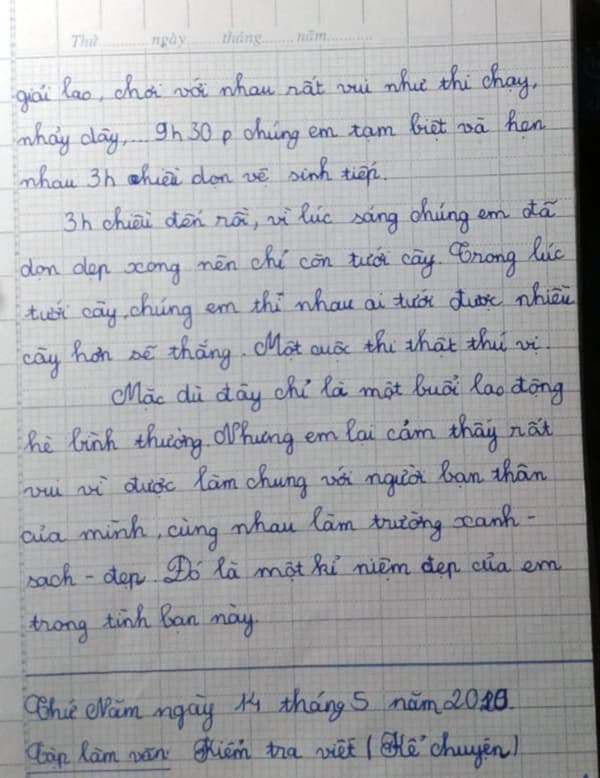 Thứ.............ngày.......tháng........năm............
giải lao, chơi với nhau rất vui như thi chạy,
nhảy dây,... 9h 30 p chúng em tạm biệt và hẹn
nhau 3h chiều dọn vệ sinh tiếp.
3h chiều đến rồi, vì lúc sáng chúng em đã
dọn dẹp xong nên chỉ còn tưới cây. Trong lúc
tưới cây, chúng em thi nhau ai tưới được nhiều
cây hơn sẽ thắng. Một cuộc thi thật thú vị.
Mặc dù đây chỉ là một buổi lao động
hè bình thường. Nhưng em lại cảm thấy rất
vui vì được làm chung với người bạn thân
của mình, cùng nhau làm trường xanh -
sạch - đẹp. Đó là một kỉ niệm đẹp của em
trong tình bạn này.
Thứ Năm ngày 14 tháng 5 năm 2020.
Tập làm văn: Kiểm tra viết (Kể chuyện)